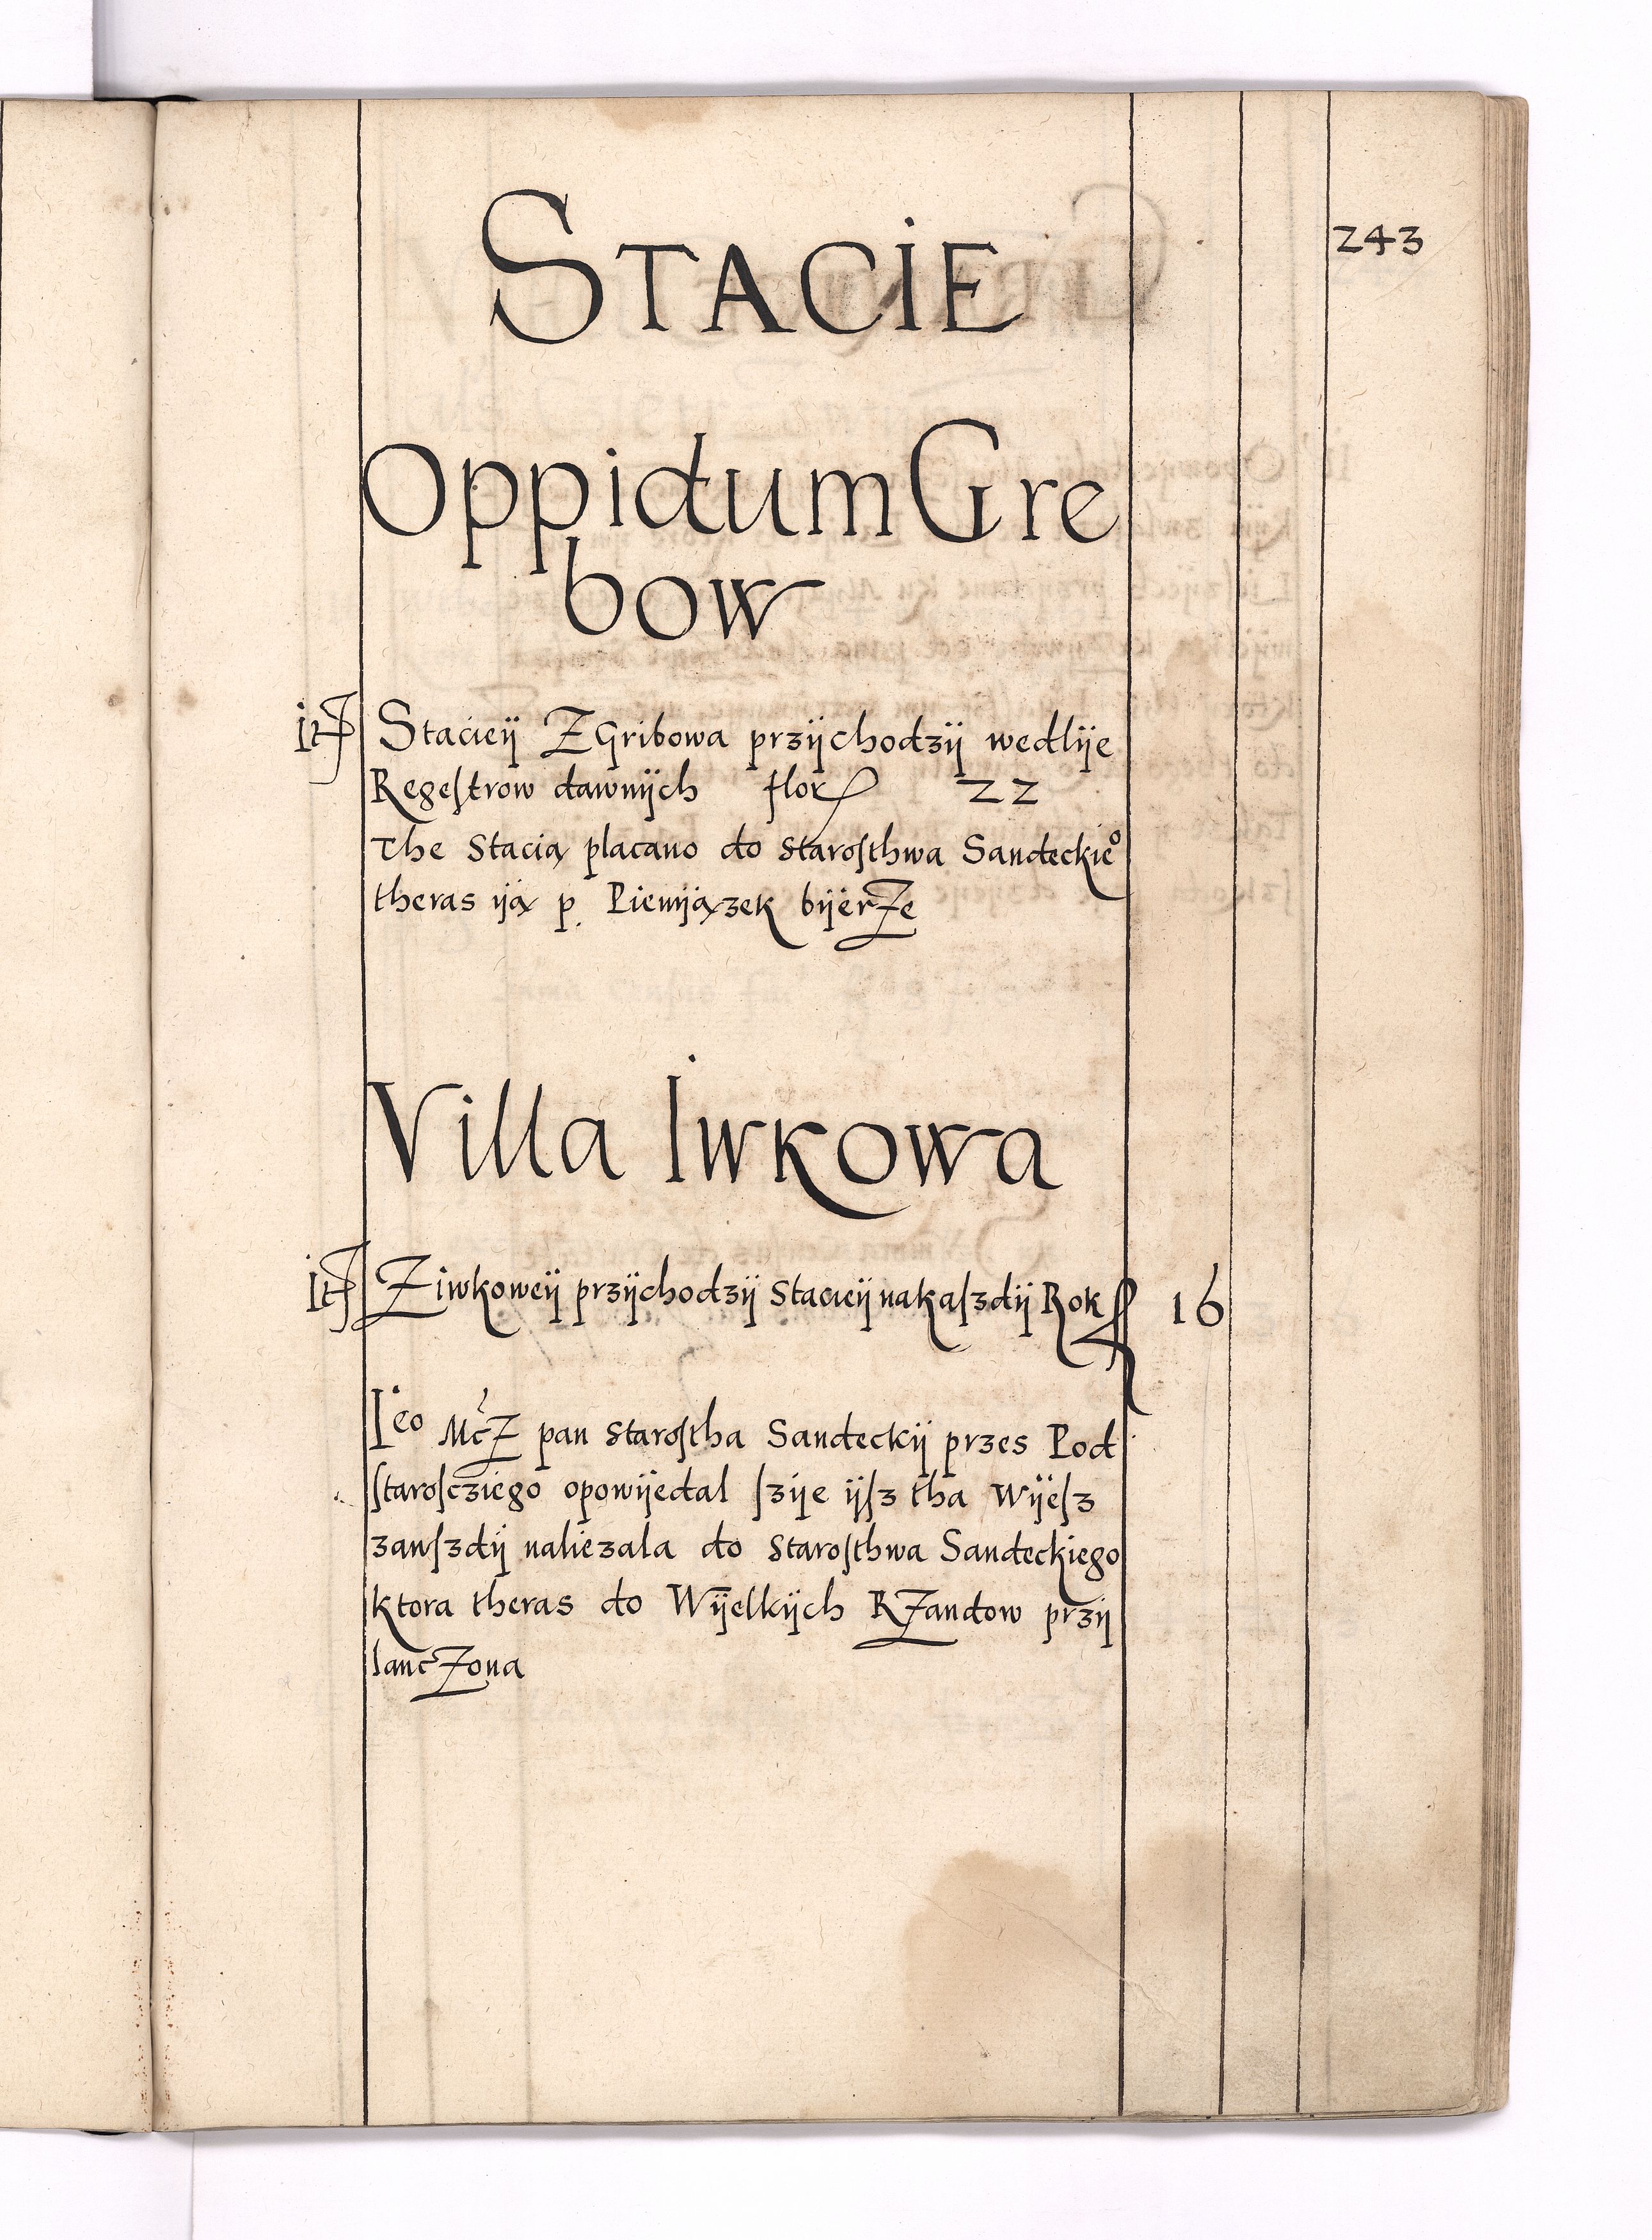 243
STACIE
Oppidum Gre
bow
It Staciey Z Gribowa przÿchodzÿ wedlÿe
Regeſtrow dawnÿch flor 22
The Stacią placano do Staroſthwa Sandeckieº
theras ÿą p. Pienÿązek bÿerZe
Villa Iwkowa
It Ziwkoweÿ przÿchodzÿ Stacieÿ na kaſzdÿ Rok fl 16
Ieo McZ pan Staroſtha Sandeckÿ przes Pod
ſtaroſcziego opowÿedal ſzÿe ÿſz tha Wÿeſz
zanſzdÿ naliezala do Staroſthwa Sandeckiego
ktora theras do Wÿelkÿch RZandow przÿ
lancZona